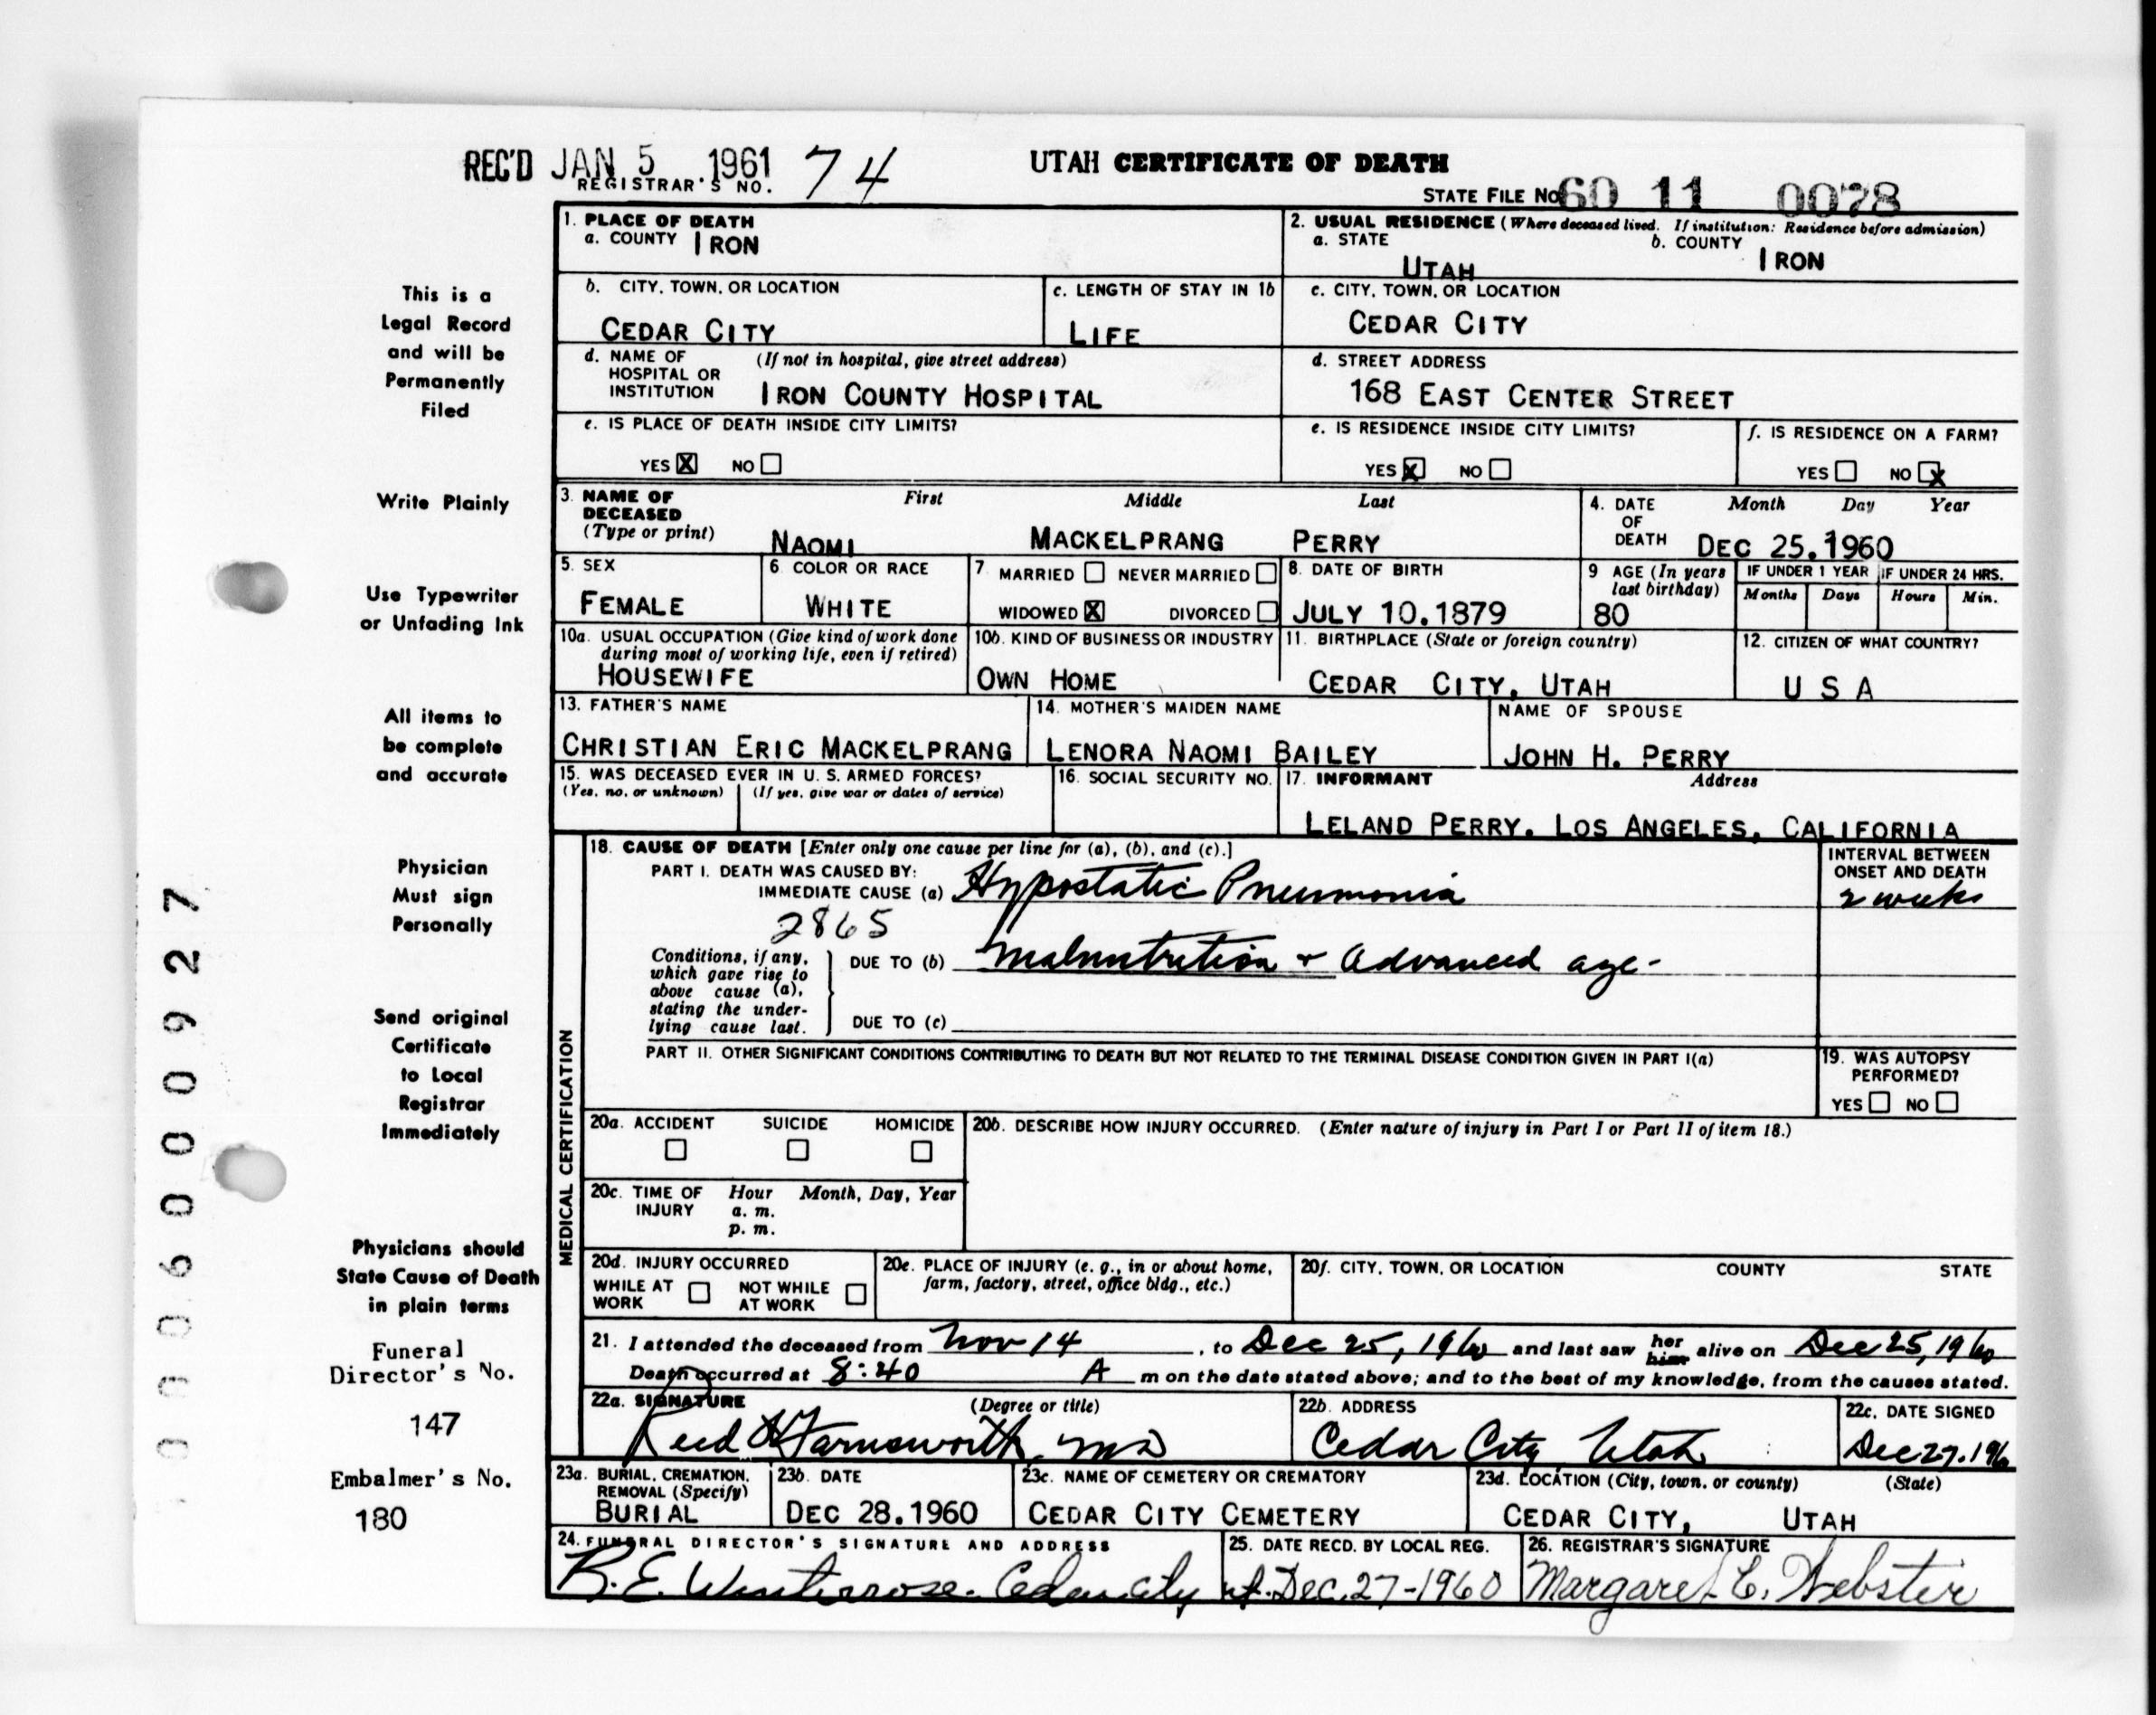 REC'D JAN 5 1961
REGISTRAR'S NO. 74
UTAH CERTIFICATE OF DEATH
STATE FILE No. 60 11 0078
This is a
Legal Record
and will be
Permanently
Filed
Write Plainly
Use Typewriter
or Unfading Ink
All items to
be complete
and accurate
Physician
Must sign
Personally
Send original
Certificate
to Local
Registrar
Immediately
Physicians should
State Cause of Death
in plain terms
Funeral
Director's No.
147
Embalmer's No.
180
000600927
1. PLACE OF DEATH
a. COUNTY IRON
2. USUAL RESIDENCE (Where deceased lived. If institution: Residence before admission)
a. STATE UTAH
b. COUNTY IRON
b. CITY, TOWN, OR LOCATION
CEDAR CITY
c. LENGTH OF STAY IN 1b
LIFE
c. CITY, TOWN, OR LOCATION
CEDAR CITY
d. NAME OF HOSPITAL OR INSTITUTION (If not in hospital, give street address)
IRON COUNTY HOSPITAL
d. STREET ADDRESS
168 EAST CENTER STREET
e. IS PLACE OF DEATH INSIDE CITY LIMITS?
YES X NO
e. IS RESIDENCE INSIDE CITY LIMITS?
YES X NO
f. IS RESIDENCE ON A FARM?
YES NO X
3. NAME OF DECEASED (Type or print)
First Middle Last
NAOMI MACKELPRANG PERRY
4. DATE OF DEATH Month Day Year
DEC 25.1960
5. SEX
FEMALE
6 COLOR OR RACE
WHITE
7 MARRIED NEVER MARRIED
WIDOWED X DIVORCED
8. DATE OF BIRTH
JULY 10.1879
9 AGE (In years last birthday)
80
IF UNDER 1 YEAR IF UNDER 24 HRS.
Months Days Hours Min.
10a. USUAL OCCUPATION (Give kind of work done during most of working life, even if retired)
HOUSEWIFE
10b. KIND OF BUSINESS OR INDUSTRY
OWN HOME
11. BIRTHPLACE (State or foreign country)
CEDAR CITY, UTAH
12. CITIZEN OF WHAT COUNTRY?
U S A
13. FATHER'S NAME
CHRISTIAN ERIC MACKELPRANG
14. MOTHER'S MAIDEN NAME
LENORA NAOMI BAILEY
NAME OF SPOUSE
JOHN H. PERRY
15. WAS DECEASED EVER IN U. S. ARMED FORCES?
(Yes, no, or unknown) (If yes, give war or dates of service)
16. SOCIAL SECURITY NO.
17. INFORMANT Address
LELAND PERRY. LOS ANGELES, CALIFORNIA
MEDICAL CERTIFICATION
18. CAUSE OF DEATH [Enter only one cause per line for (a), (b), and (c).]
PART I. DEATH WAS CAUSED BY:
IMMEDIATE CAUSE (a) Hypostatic Pneumonia
INTERVAL BETWEEN ONSET AND DEATH
2 weeks
2865
Conditions, if any, which gave rise to above cause (a), stating the underlying cause last.
DUE TO (b) Malnutrition + Advanced age-
DUE TO (c)
PART II. OTHER SIGNIFICANT CONDITIONS CONTRIBUTING TO DEATH BUT NOT RELATED TO THE TERMINAL DISEASE CONDITION GIVEN IN PART I(a)
19. WAS AUTOPSY PERFORMED?
YES NO
20a. ACCIDENT SUICIDE HOMICIDE
20b. DESCRIBE HOW INJURY OCCURRED. (Enter nature of injury in Part I or Part II of item 18.)
20c. TIME OF INJURY Hour Month, Day, Year
a. m.
p. m.
20d. INJURY OCCURRED
WHILE AT WORK NOT WHILE AT WORK
20e. PLACE OF INJURY (e. g., in or about home, farm, factory, street, office bldg., etc.)
20f. CITY, TOWN, OR LOCATION COUNTY STATE
21. I attended the deceased from Nov 14, to Dec 25, 1960 and last saw her him alive on Dec 25, 1960
Death occurred at 8:40 A m on the date stated above; and to the best of my knowledge, from the causes stated.
22a. SIGNATURE (Degree or title)
Reed H Farnsworth MD
22b. ADDRESS
Cedar City Utah
22c. DATE SIGNED
Dec 27, 196
23a. BURIAL, CREMATION, REMOVAL (Specify)
BURIAL
23b. DATE
DEC 28.1960
23c. NAME OF CEMETERY OR CREMATORY
CEDAR CITY CEMETERY
23d. LOCATION (City, town, or county) (State)
CEDAR CITY, UTAH
24. FUNERAL DIRECTOR'S SIGNATURE AND ADDRESS
R.E. Winterrose. Cedar City ut.
25. DATE RECD. BY LOCAL REG.
Dec. 27-1960
26. REGISTRAR'S SIGNATURE
Margaret C. Webster